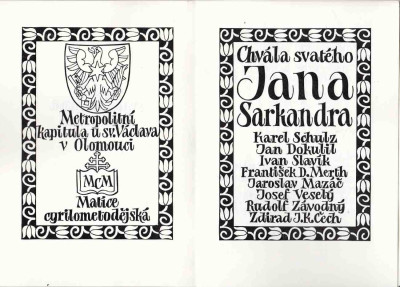 Metropolitní
kapitula u sv. Václava
v Olomouci
MCM
Matice
cyrilometodějská
Chvála svatého
Jana
Sarkandra
Karel Schulz
Jan Dokulil
Ivan Slavík
František D. Merth
Jaroslav Mazáč
Josef Veselý
Rudolf Závodný
Zdirad J.K. Čech